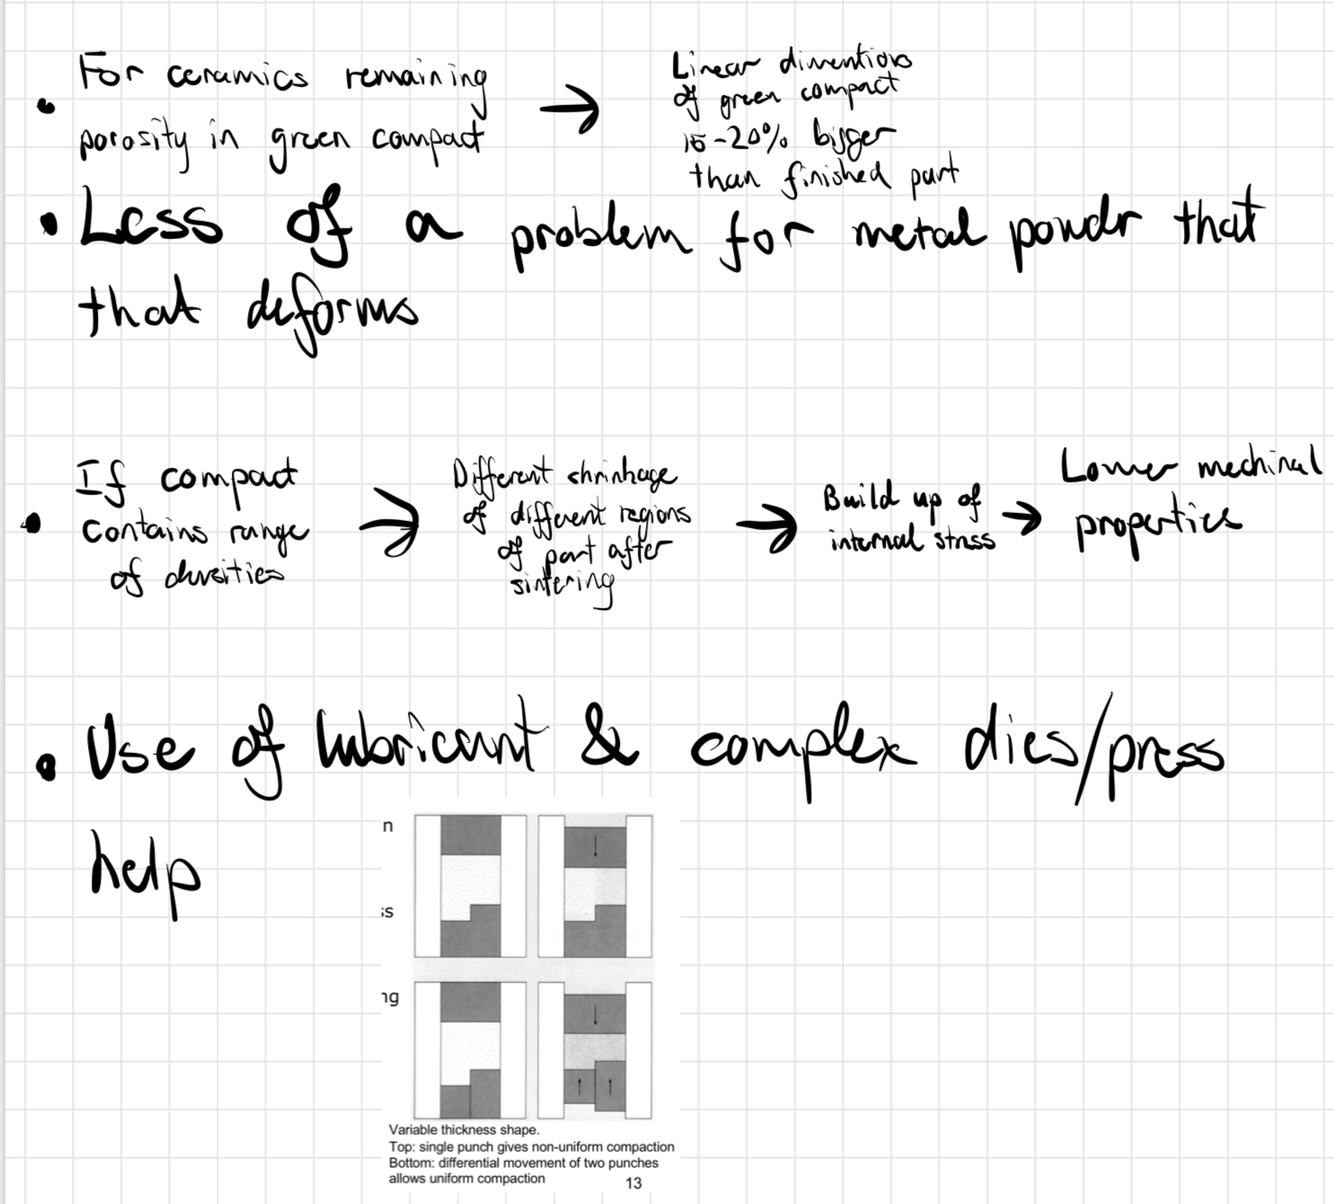 For ceramics remaining
porosity in green compact
→
Linear dimentions
of green compact
15-20% bigger
than finished part
• Less of a problem for metal powdr that
that deforms
• If compact
contains range
of densities
→
Different shrinkage
of different regions
of part after
sintering
→
Build up of
internal stress
→
Lower mechinal
properties
• Use of lubricant & complex dies/press
help
n
ss
ng
Variable thickness shape.
Top: single punch gives non-uniform compaction
Bottom: differential movement of two punches
allows uniform compaction
13